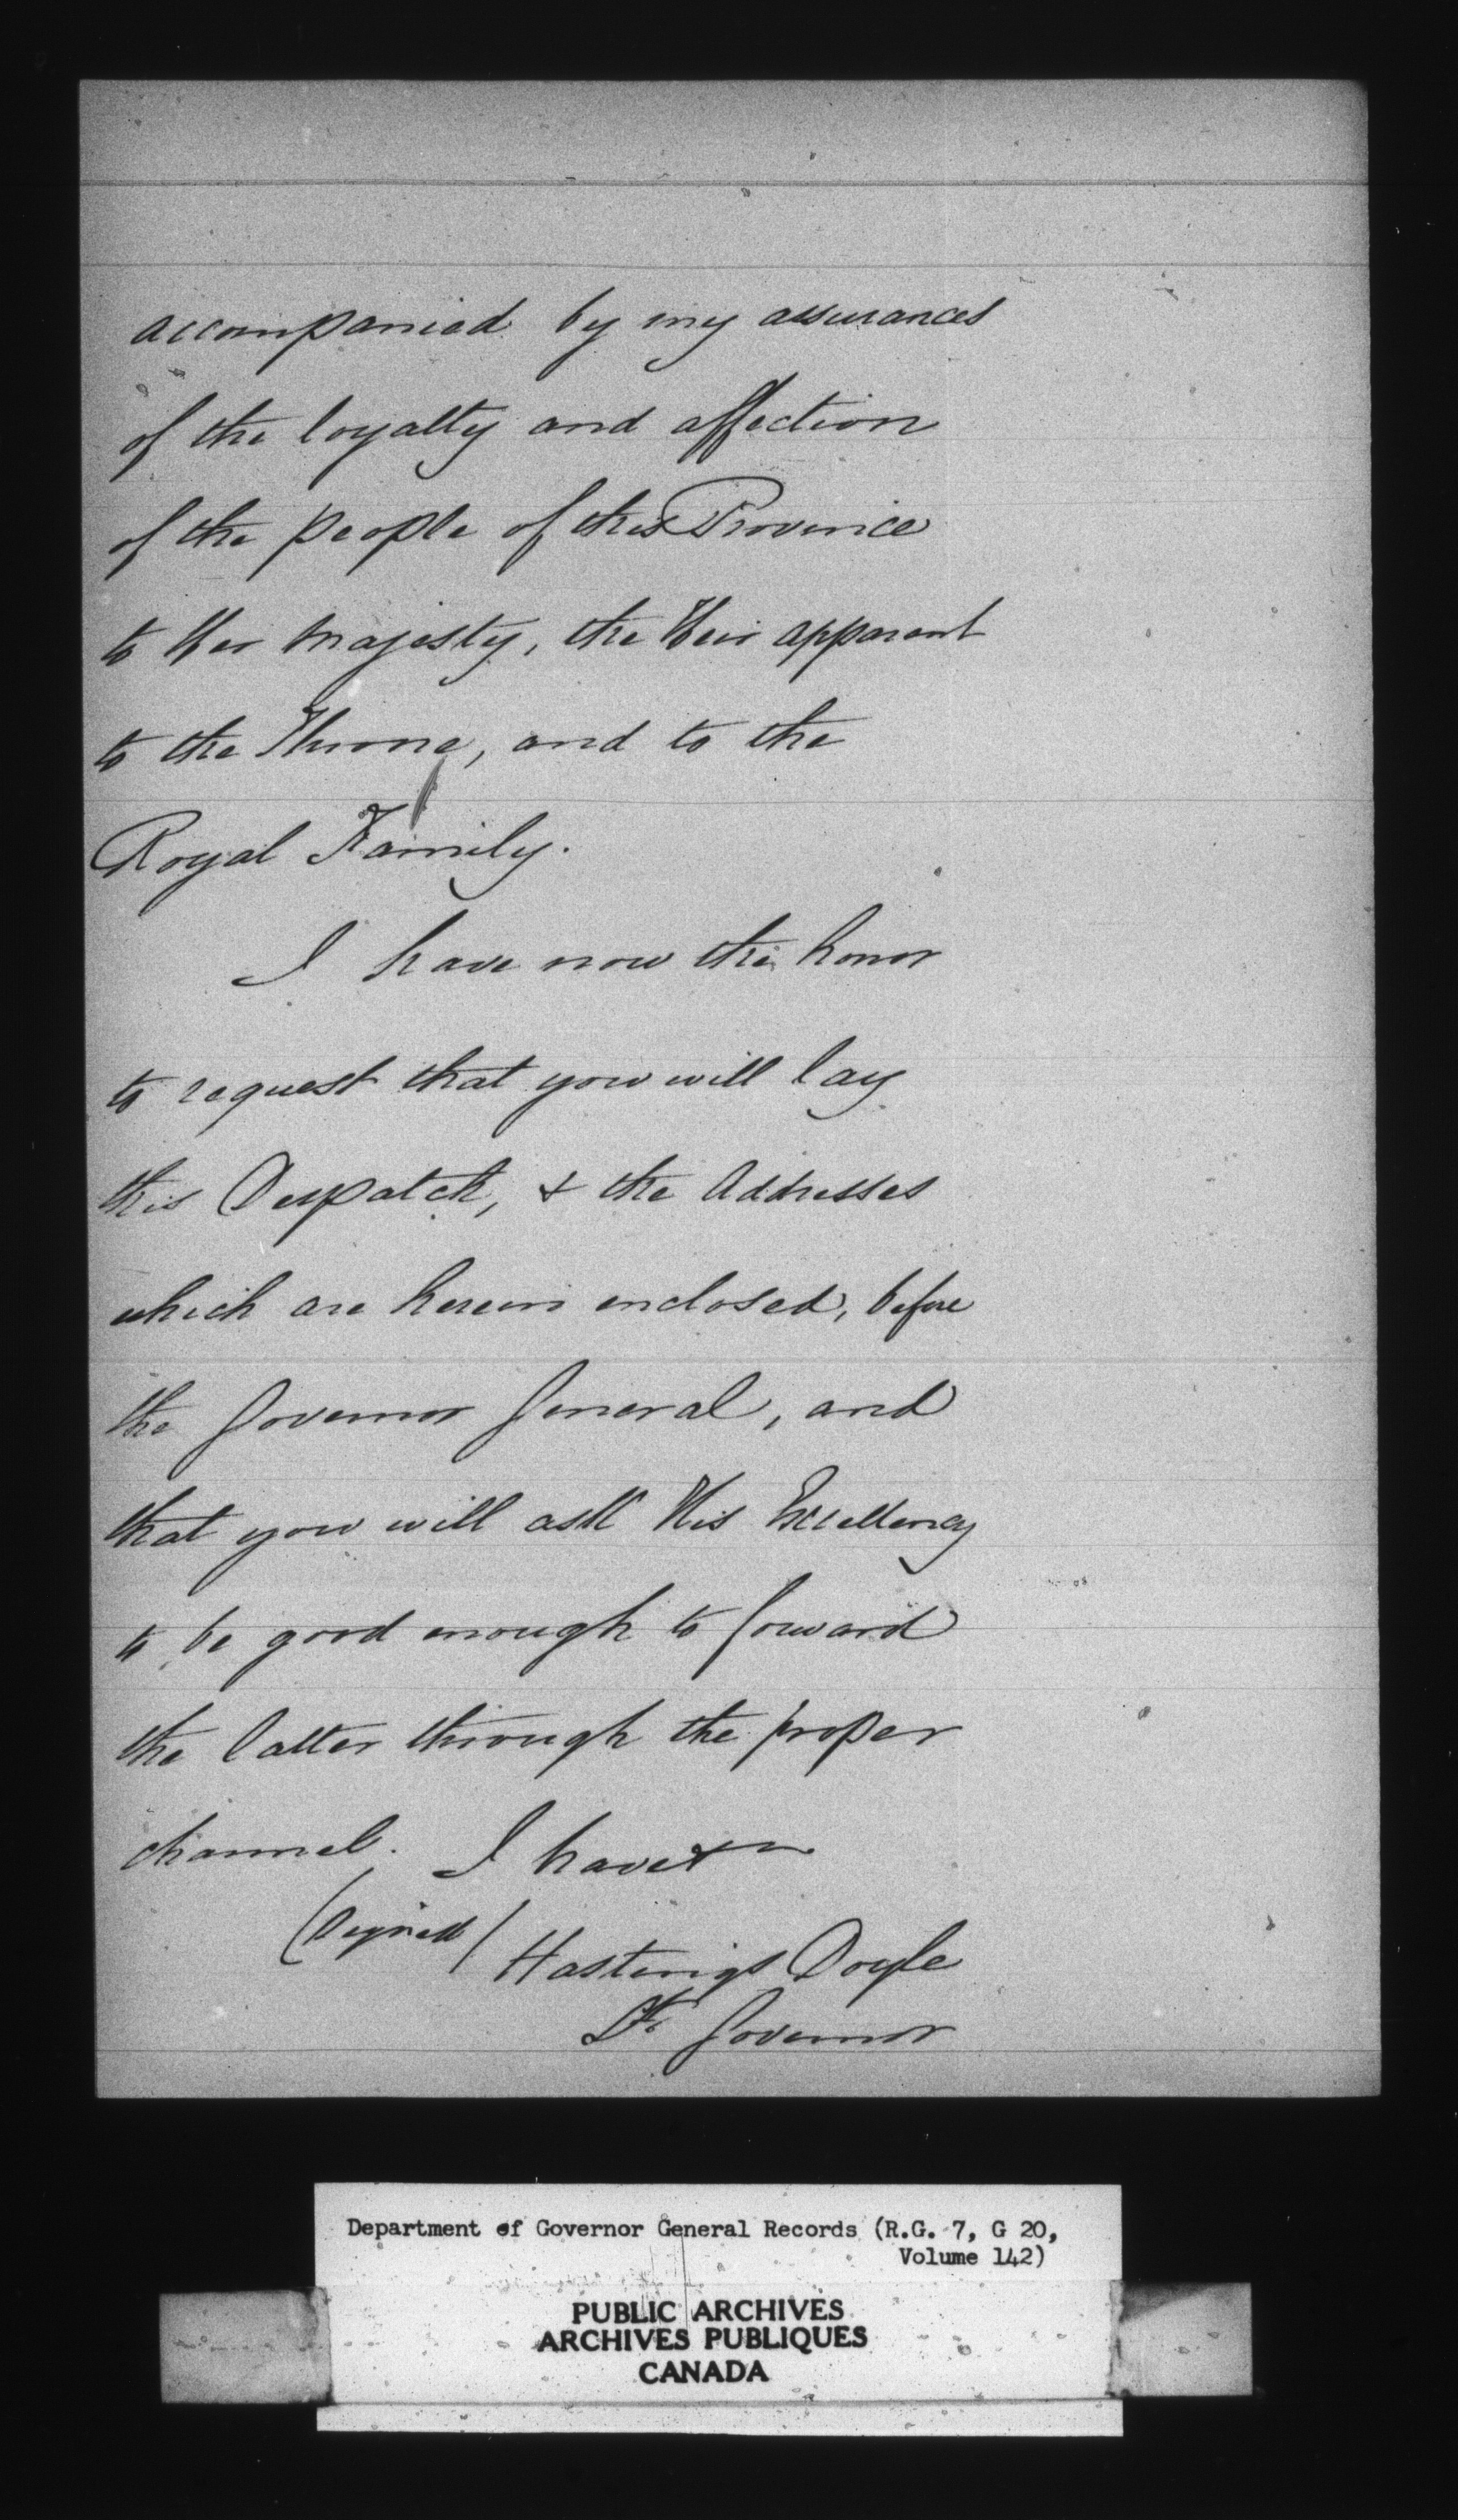 accompanied by my assurances
of the loyalty and affection
of the people of this Province
to Her Majesty, the Heir apparent
to the Throne, and to the
Royal Family.
I have now the honor
to request that you will lay
this Despatch, & the Addresses
which are herein enclosed, before
the Governor General, and
that you will ask His Excellency
to be good enough to forward
the latter through the proper
channel. I have &
(Signed) Hastings Doyle
Lt Governor
Department of Governor General Records (R.G. 7, G 20,
Volume 142)
PUBLIC ARCHIVES
ARCHIVES PUBLIQUES
CANADA